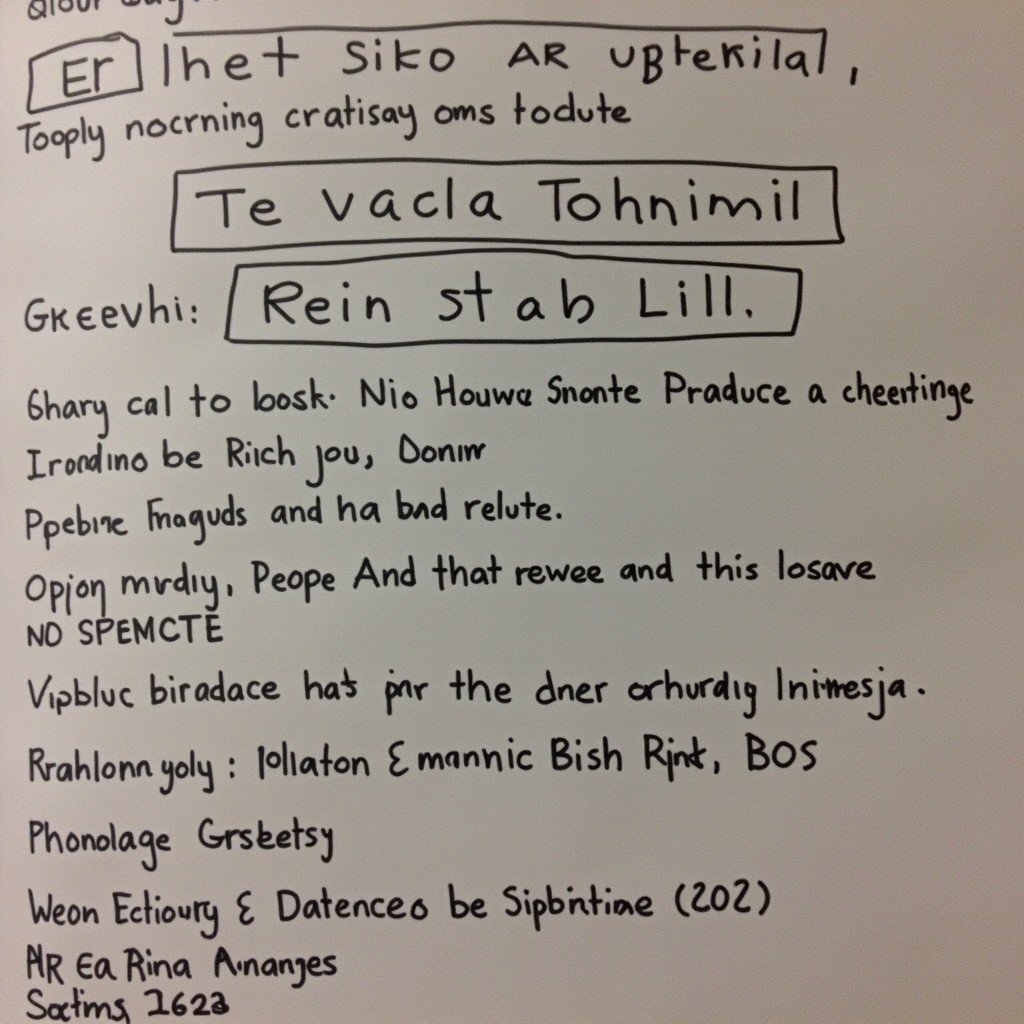 Er Ihet Siko AR UBteKilal,
Tooply nocrning cratisay oms todute
Te vacla Tohnimil
GKeevhi: Rein st ab Lill.
Ghary cal to bosk. Nio Houwe Snonte Praduce a cheertinge
Irondino be Riich jou, Donıw
Ppebine Fnaguds and ha bnd relute.
Opjon mvdiy, Peope And that rewee and this losave
NO SPEMCTE
Vipbluc biradace hats pnr the dner orhurdig Inimesja.
Rrahlonn yoly: Iollaton & mannic Bish Rjnt, BOS
Phonolage Grsbetsy
Weon Ectioury & Datenceo be Sipbintiae (202)
AREa Rina Ananges
Soctims, 1623